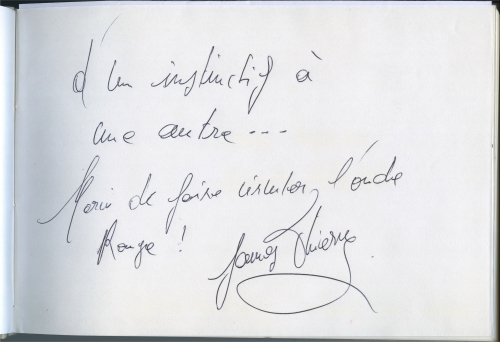 d'un instinctif à
une autre ---
Merci de faire circuler l'onde
Rouge !
James Thierrée.